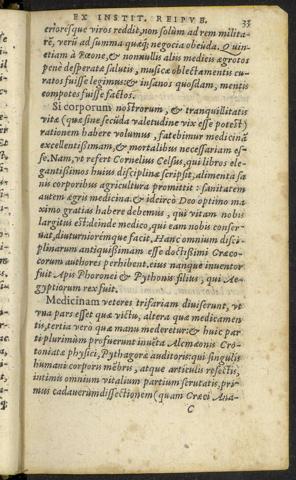 EX INSTIT. REIPVB. 33
crioreśque viros reddit, non solùm ad rem milita-
rē, verū ad summa quæq; negocia obeūda. Quin-
etiam à Pæone, & nonnullis aliis medicis ægrotos
penè desperatæ salutis, musicæ oblectamentis cu-
ratos fuisse legimus: & insanos quosdam, mentis
compotes fuisse factos.
Si corporum nostrorum, & tranquillitatis
vitæ (quæ sine secūda valetudine vix esse potest)
rationem habere volumus, fatebimur medicinā
excellentissimam, & mortalibus necessariam es-
se. Nam, vt refert Cornelius Celsus, qui libros ele-
gantissimos huius disciplinæ scripsit, alimenta sa
nis corporibus agricultura promittit: sanitatem
autem ægris medicina. & idcirco Deo optimo ma
ximo gratias habere debemus, qui vitam nobis
largitus est: deinde medico, qui eam nobis conser-
uat, diuturniorémque facit. Hanc omnium disci-
plinarum antiquissimam esse doctissimi Græco-
corum authores perhibent. eius nanque inuentor
fuit Apis Phoronei & Pythonis filius, qui Ae-
gyptiorum rex fuit.
Medicinam veteres trifariam diuiserunt, vt
vna pars esset quæ victu, altera quæ medicamen
tis, tertia verò quæ manu mederetur: & huic par
ti plurimùm profuerunt inuēta Alcmæonis Cro-
toniatæ physici, Pythagoræ auditoris: qui singulis
humani corporis mēbris, atque articulis resectis,
intimis omnium vitalium partium scrutatis, pri-
mus cadauerum dissectionem (quam Græci Ana-
C